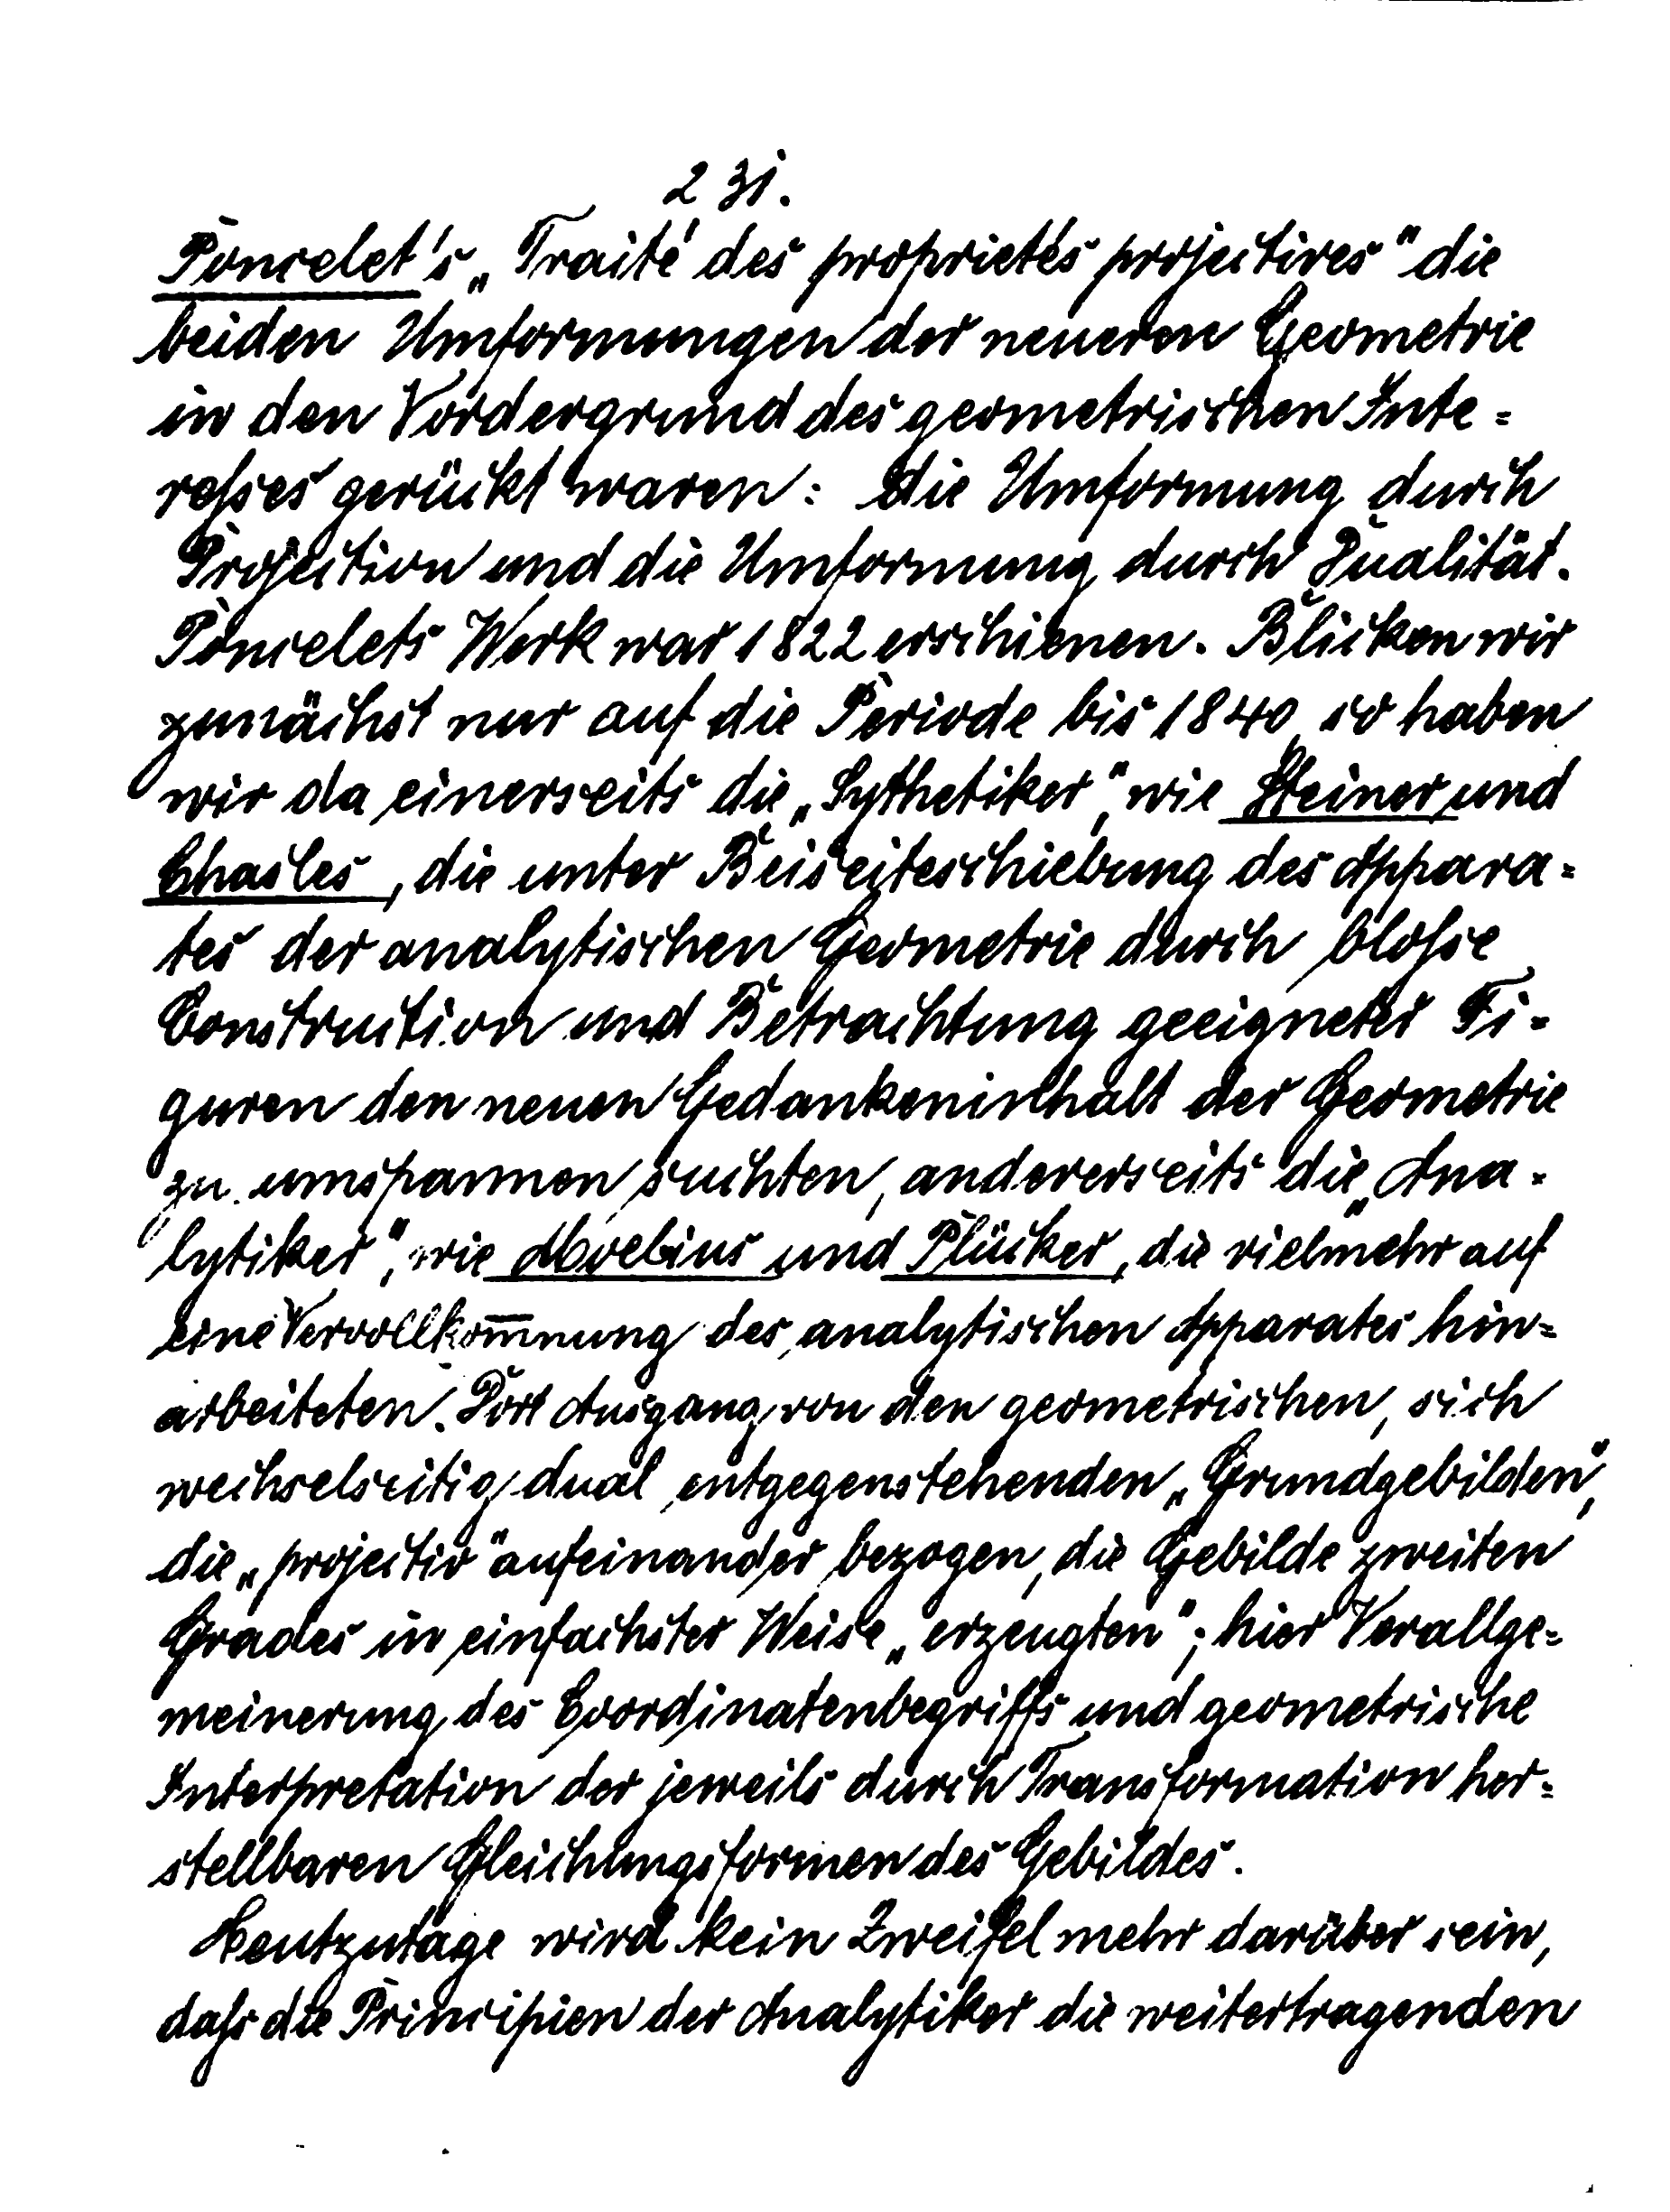 231.
Poncelet's „Traité des proprietés projectives" die
beiden Umformungen der neueren Geometrie
in den Vordergrund des geometrischen Inte=
resses gerückt waren: die Umformung durch
Projection und die Umformung durch Dualität.
Poncelets Werk war 1822 erschienen. Blicken wir
zunächst nur auf die Periode bis 1840, so haben
wir da einerseits die „Sythetiker", wie Steiner und
Chasles, die unter Beiseiteschiebung des Appara=
tes der analytischen Geometrie durch blosse
Construction und Betrachtung geeigneter Fi=
guren den neuen Gedankeninhalt der Geometrie
zu umspannen suchten, andererseits die „Ana=
lytiker", wie Moebius und Plücker, die vielmehr auf
eine Vervollkom̅nung des analytischen Apparates hin=
arbeiteten. Dort Ausgang von den geometrischen, sich
wechselseitig dual entgegenstehenden „Grundgebilden",
die „projectiv" aufeinander bezogen, die Gebilde zweiten
Grades in einfachster Weise „erzeugten"; hier Verallge=
meinerung des Coordinatenbegriffs und geometrische
Interpretation der jeweils durch Transformation her=
stellbaren Gleichungsformen des Gebildes.
Heutzutage wird kein Zweifel mehr darüber sein,
dass die Principien der Analytiker die weitertragenden